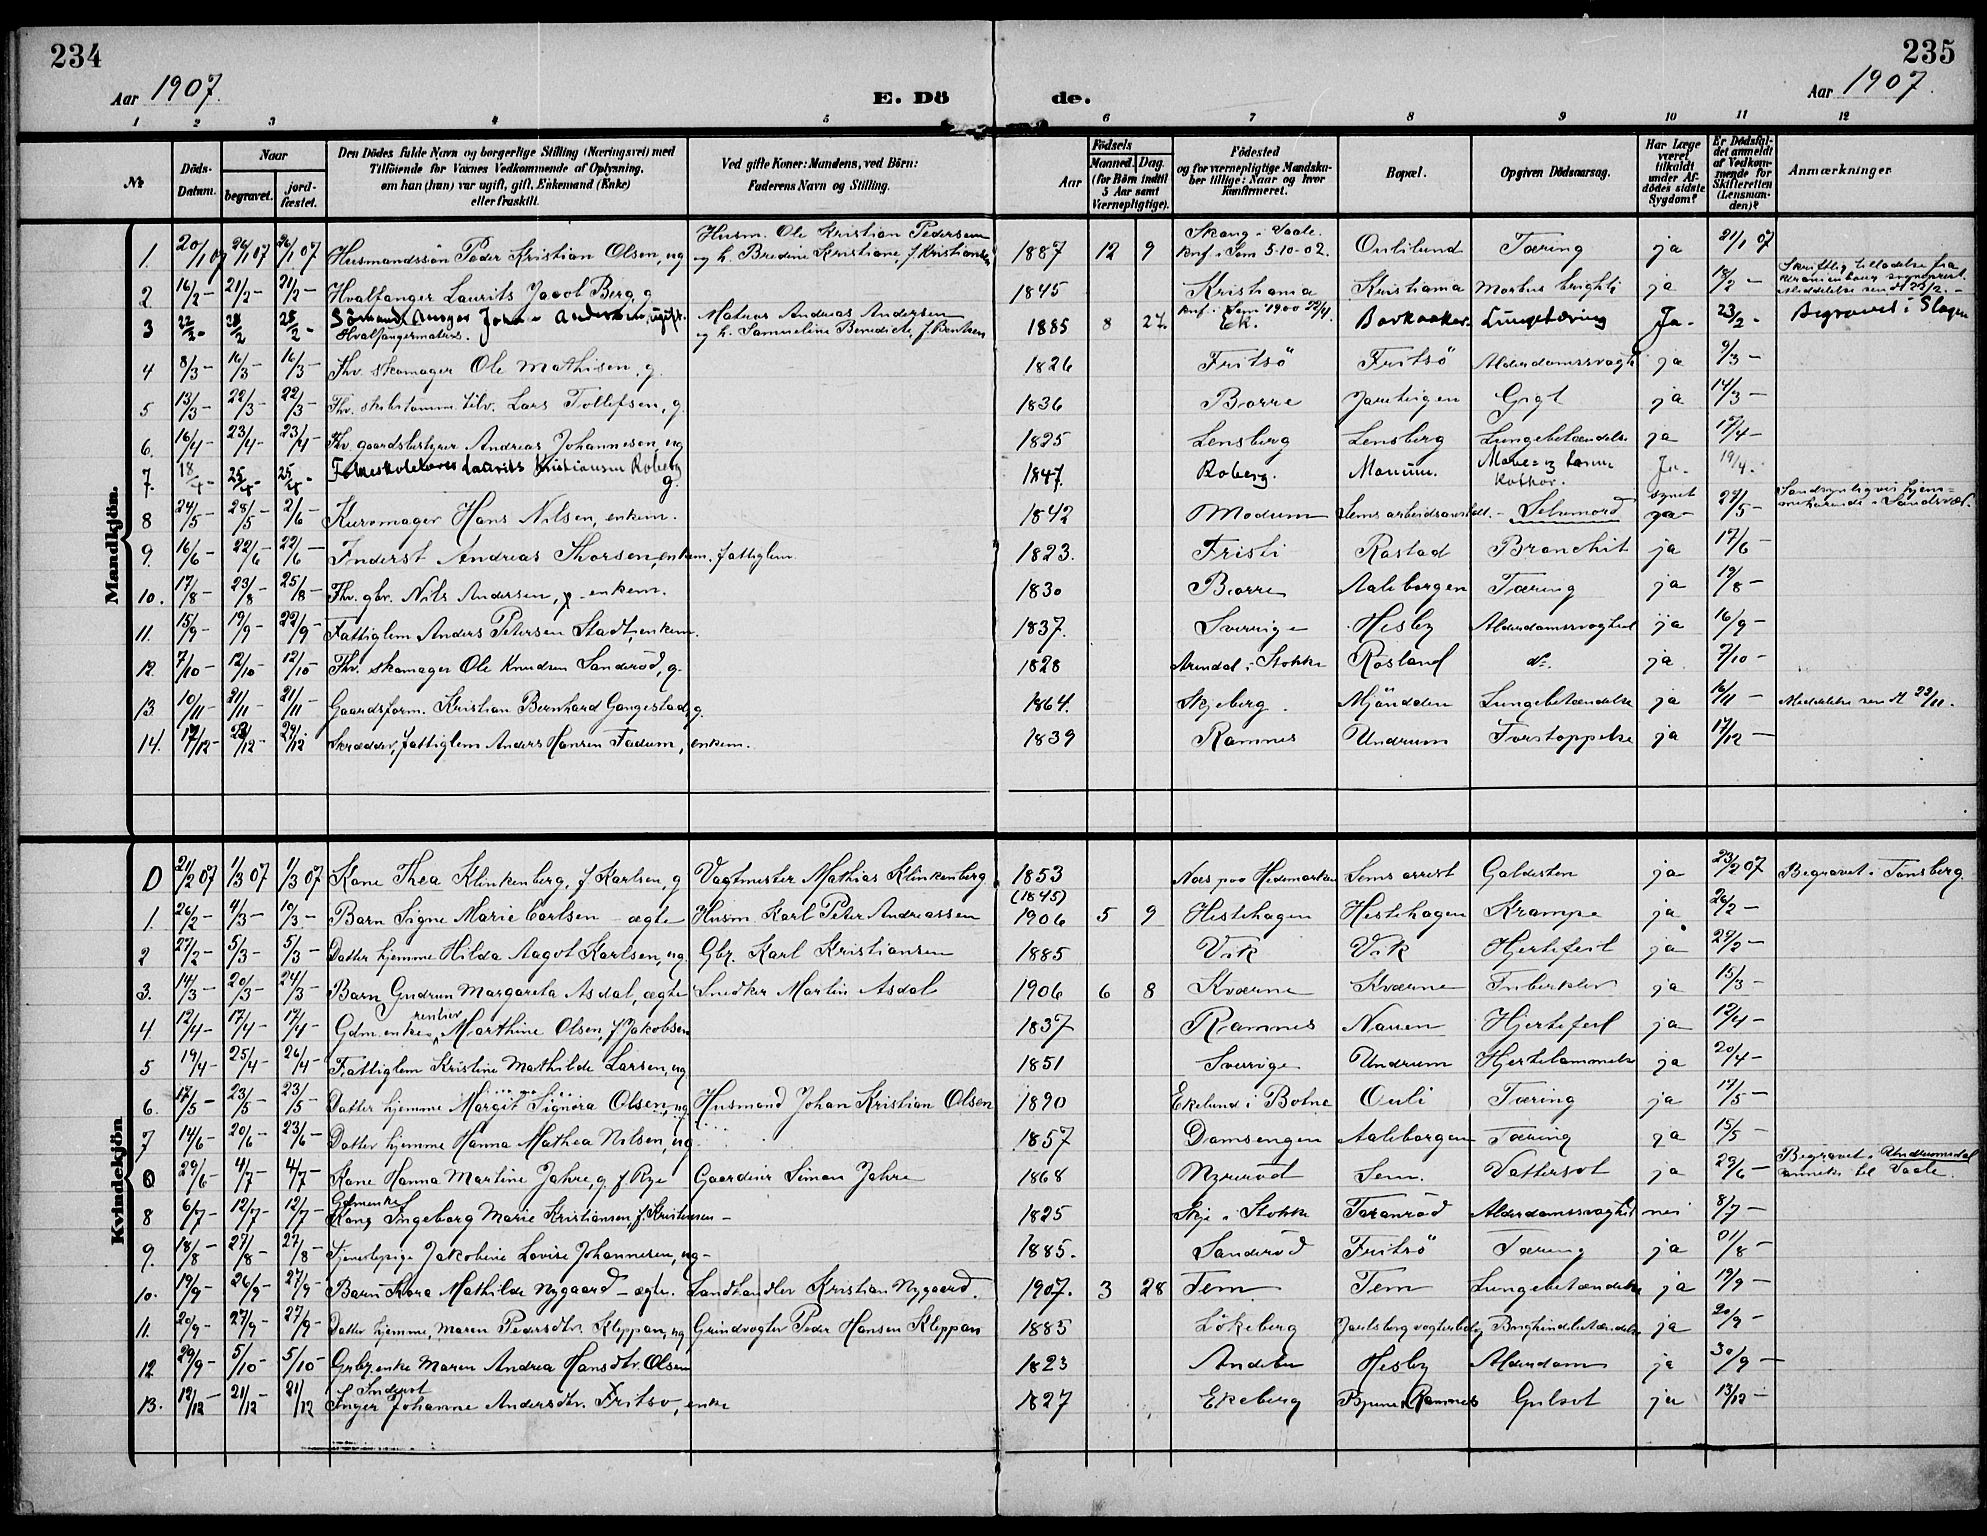 234
235
Aar 1907.
E. Döde.
Aar 1907.
1 2 3 4 5 6 7 8 9 10 11 12
№
Döds-Datum.
Naar
begravet.
jordfæstet.
Den Dödes fulde Navn og borgerlige Stilling (Næringsvei) med
Tilföiende for Voxnes Vedkommende af Oplysning,
om han (hun) var ugift, gift, Enkemand (Enke)
eller fraskilt.
Ved gifte Koner: Mandens, ved Börn:
Faderens Navn og Stilling.
Födsels
Aar
Maaned. Dag.
(for Börn indtil
5 Aar samt
Værnepligtige).
Födested
og for værnepligtige Mandska-
ber tillige: Naar og hvor
konfirmeret.
Bopæl.
Opgiven Dödsaarsag.
Har Læge
været
tilkaldt
under Af-
dödes sidste
Sygdom?
Er Dödsfal-
det anmeldt
af Vedkom-
mende for
Skifteretten
(Lensman-
den)?
Anmærkninger
Mandkjön.
1. 20/1 07 26/1 07 26/1 07 Husmandssön Peder Kristian Olsen, ug Husm. Ole Kristian Pedersen og h. Bredine Kristiane, f. Kristiansen 1887 12 9 Skang i Vaale. knf. i Sem 5-10-02. Tæring ja 21/1 07
2 16/2 – 21/2 – 21/2 – Hvalfanger Laurits Jacob Berg, g. 1845 Kristiania Kristiania Morbus brighti ja 18/2 –
3 22/2 – 28/2 28/2 – Sömand Ansgar Johan Andersen, ugift. Hvalfangermatros. Matros Andreas Andersen og h. Samueline Benedicte, f. Bentsen 1885 8 27. knf. i Sem 1900 Ek. Barkaaker Lungetæring Ja. 23/2 – Begravet i Slagen
4 8/3 – 16/3 – 16/3 – Fhv. skomager Ole Mathisen, g. 1826 Fritsö Fritsö Alderdomssvagh ja 9/3 –
5 13/3 – 22/3 – 22/3 – Fhv. skibstömm. Lars Tollefsen, g. 1836 Borre Gigt ja 14/3 –
6. 16/4 – 23/4 – 23/4 – Fhv. gaardsbestyrer Andreas Johannesen, ug 1825 Lensberg Lensberg Lungebetændelse ja 17/4 –
7. 18/4 – 25/4 – 25/4 – Folkeskolelærer Laurits Kristiansen Roberg g. 1847. Roberg. Manum. Mave- og tarmkathar. Ja. 19/4.
8 24/5 – 28/5 – 2/6 – Kurvmager Hans Nilsen, enkem. 1842 Modum Sems arbeidsanstalt. – Selvmord synet ja 27/5 –
9. 16/6 – 22/6 – 22/6 – Inderst Andreas Thorsen, enkem. fattiglem. 1823. Rastad Bronchit ja 17/6 –
10. 17/8 – 23/8 – 25/8 – Fhv. gbr. Nils Andersen, enkem. 1830 Borre Aaleborgen Tæring ja 19/8 –
11. 15/9 – 19/9 – 22/9 – Fattiglem Anders Petersen Stadt, enkem. 1837. Sverrige Hesby Alderdomssvaghed ja 16/9 –
12. 7/10 – 12/10 – 12/10 – Fhv. skomager Ole Knudsen Sanderöd, g. 1828 Arendal i Stokke Rosland do. ja 7/10 –
13. 10/11 – 21/11 – 21/11 – Gaardsform. Kristian Bernhard Gangestad, g. 1864. Skjeberg. Mjöndden Lungebetændelse ja 16/11 – Meddelelse sendt 23/11.
14. 17/12 – 23/12 – 29/12 Skrædder, fattiglem Anders Hansen Fadum, enkem. 1839 Ramnes Undrum Forstoppelse ja 17/12 –
Kvindekjön
0 21/2 07 1/3 07 1/3 07 Kone Thea Klinkenberg, f. Karlsen, g Vagtmester Mathias Klinkenberg 1853 (1845) Næs paa Hedemarken Sems arrest Galdesten ja 23/2 07 Begravet i Tönsberg.
1. 26/2 – 4/3 – 10/3 – Barn Signe Marie Carlsen – ægte Husm. Karl Peter Andreassen 1906 5 9 Hestehagen Hestehagen Krampe ja 26/2 –
2 27/2 – 5/3 – 5/3 – Datter hjemme Hilda Aagot Karlsen, ug. Gbr. Karl Kristiansen 1885 Vik Vik Hjertefeil ja 27/2 –
3. 14/3 – 20/3 – 24/3 – Barn Gudrun Margareta Asdal, ægte Snedker Martin Asdal 1906 6 8 Kværne Kværne Tuberklev. ja 15/3 –
4 12/4 – 17/4 – 17/4 – Gdm.enke Marthine Olsen, f. Jakobsen 1837 Ramnes Nauen Hjertefeil ja 12/4 –
5 19/4 – 25/4 – 26/4 – Fattiglem Kristine Mathilde Larsen, ug 1851 Sverige Undrum Hjertelammelse ja 20/4 –
6. 17/5 – 23/5 – 23/5 – Datter hjemme Margit Signora Olsen, ug Husmand Johan Kristian Olsen 1890 Ekelund i Botne Auli Tæring ja 17/5 –
7 14/6 – 20/6 – 23/6 – Datter hjemme Hanna Mathea Nilsen, ug 1857 Damsengen Aaleborgen Tæring ja 15/5 –
0 29/6 – 4/7 – 4/7 – Kone Hanna Martine Jahre, g. f. Rye Gaardeier Simon Jahre 1868 Sem. Vattersot ja 29/6 – Begravet i Undrumsdal anneks til Vaale.
8 6/7 – 12/7 – 12/7 – Gdmenke Ingeborg Marie Kristiansen, f. Kristensen – 1825 Skje i Stokke Taranröd Alderdomssvaghed nei 8/7 –
9. 18/8 – 27/8 – 27/8 – Tjenestepige Jakobine Lovise Johannesen, ug – 1885. Sanderöd Fritsö Tæring ja 21/8 –
10. 19/9 – 26/9 – 27/9 – Barn Kara Mathilde Nygaard – ægte. Landhandler Kristian Nygaard. 1907. 3 28 Tem Tem Lungebetændelse ja 19/9 –
11. 20/9 – 27/9 – 27/9 – Datter hjemme, Maren Pedersdtr. Kleppan, ug Grindvogter Peder Hansen Kleppan 1885 Lökeberg Jarlsberg vogterbolig Brysthindebetændelse ja 20/9 –
12. 29/9 – 5/10 – 5/10 – Grbr.enke Maren Andrea Hansdtr. Olsen 1823 Andebu Hesby Alderdom ja 30/9 –
13. 12/12 – 21/12 – 21/12 Inderst Inger Johanne Andersdtr. Fritsö, enke 1827 Ekeberg Bjune i Ramnes Gulsot ja 13/12 –